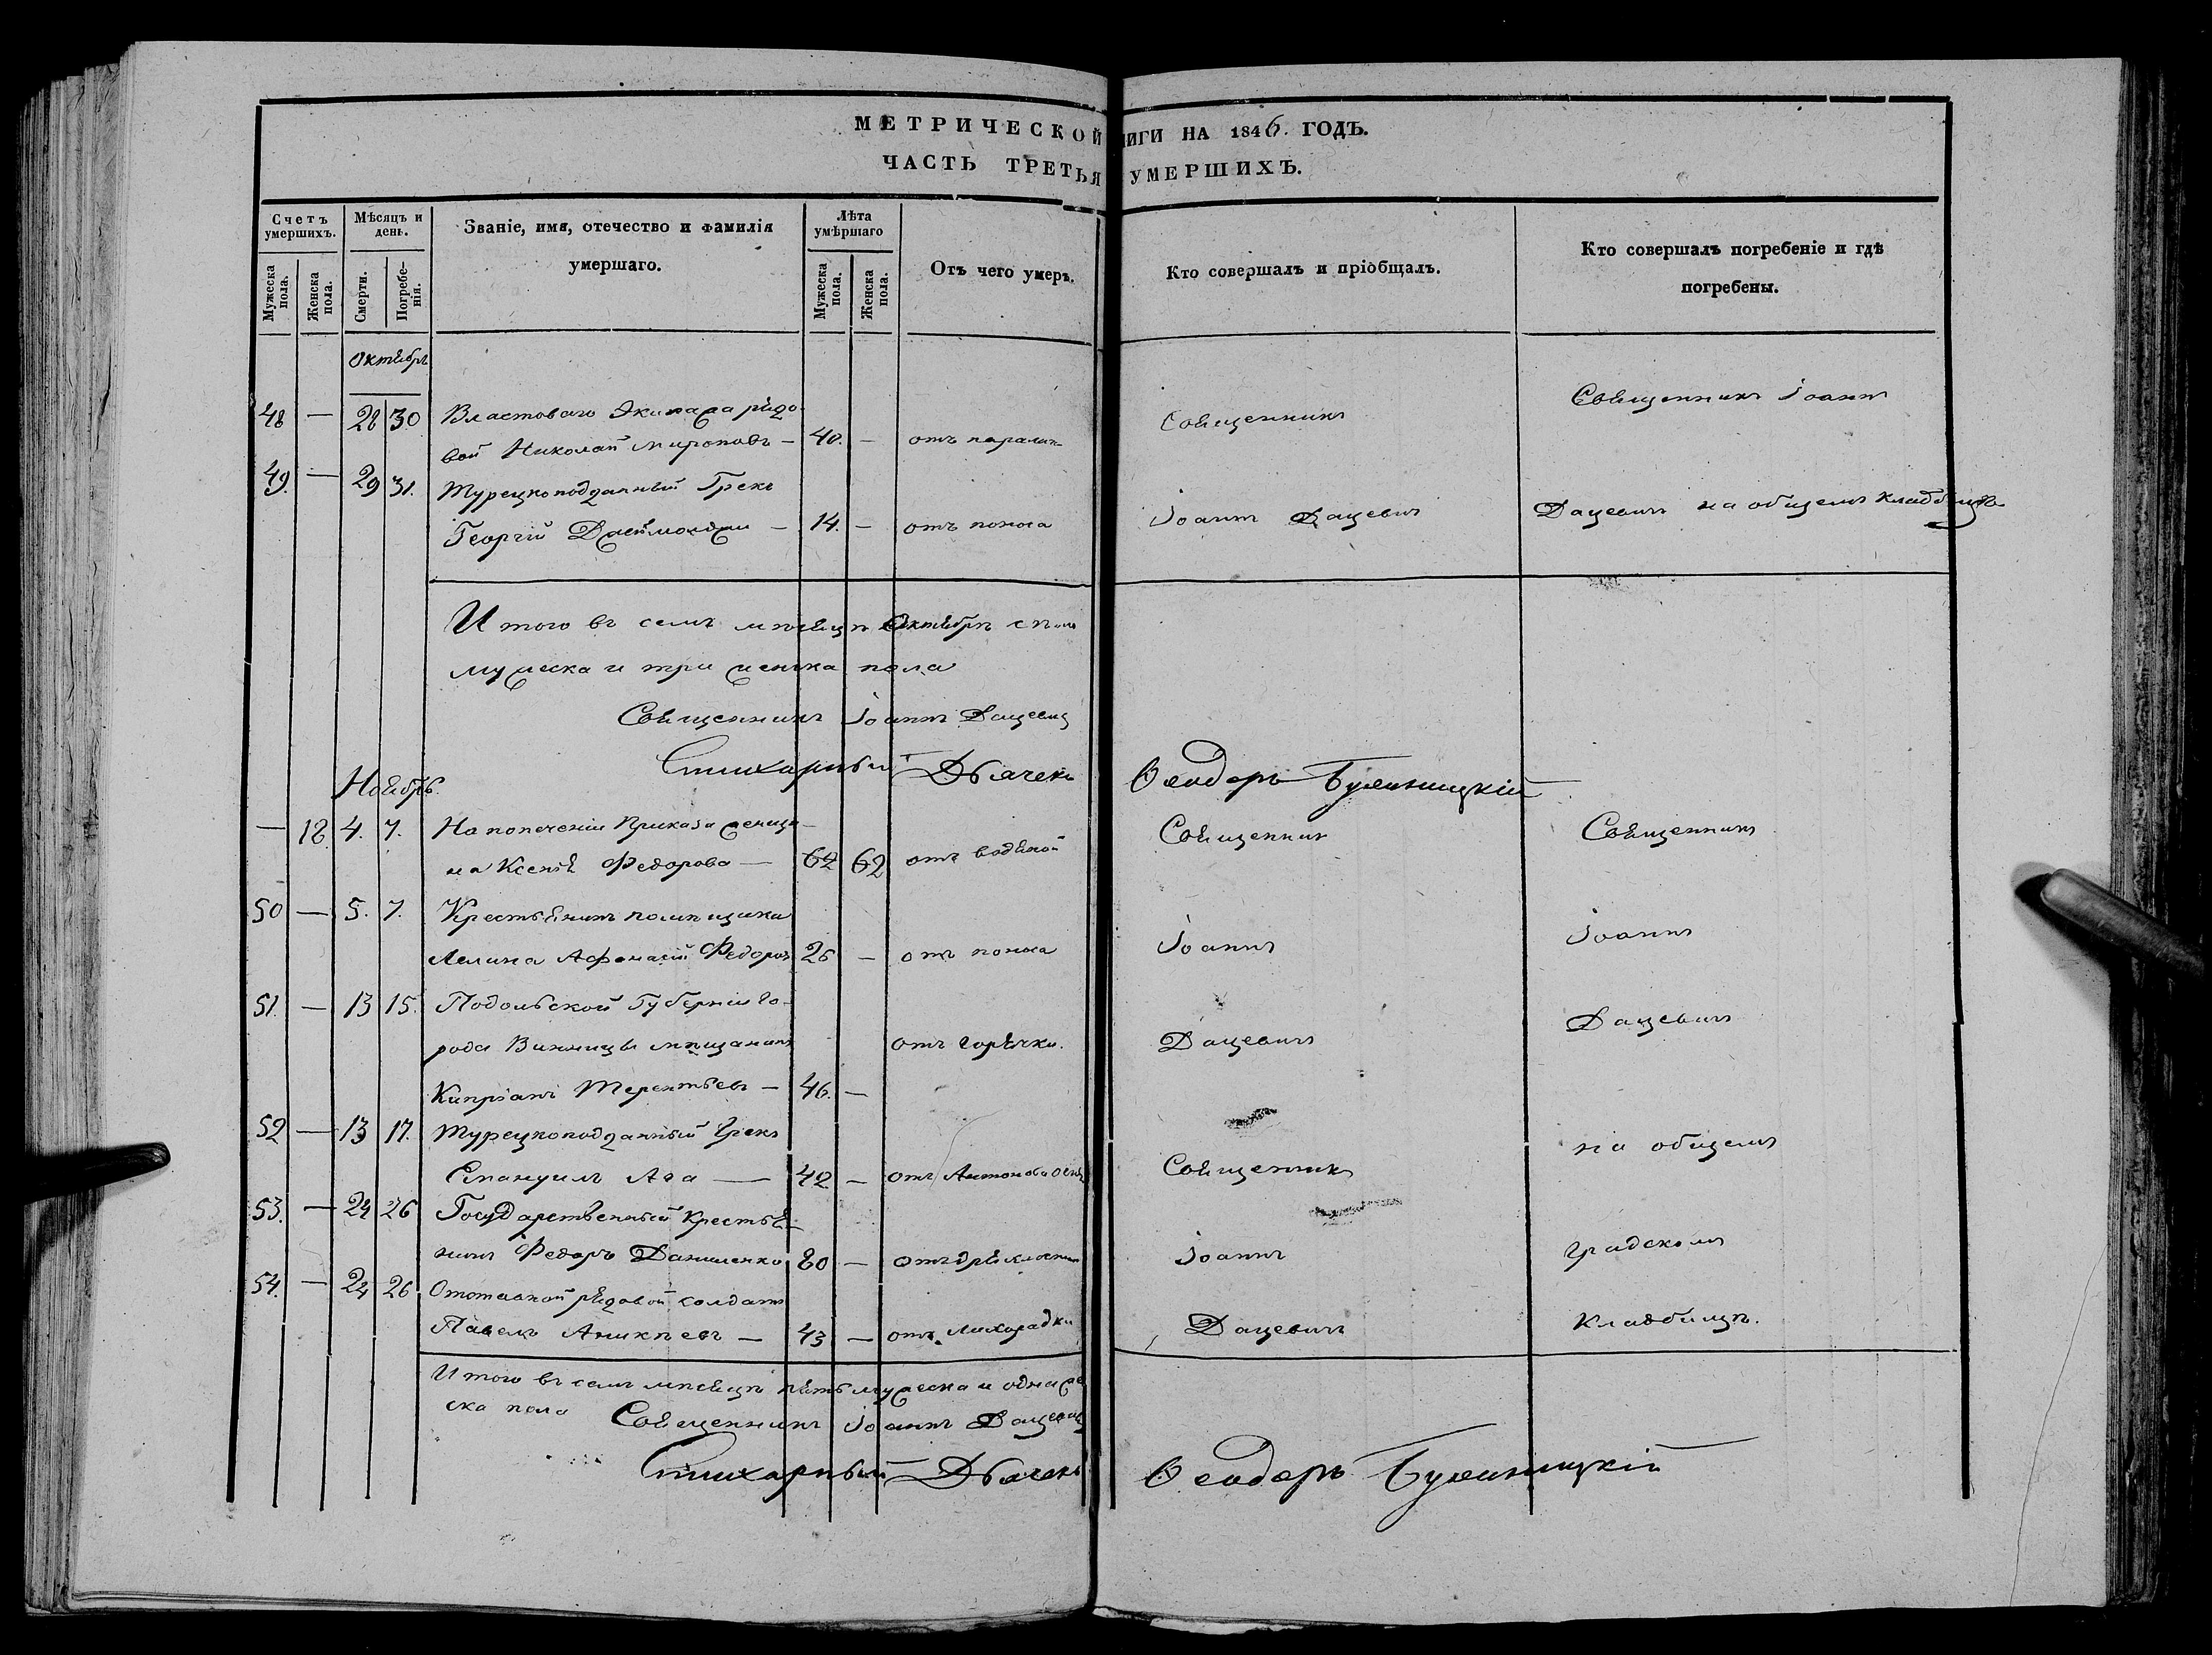 МЕТРИЧЕСКОЙ
ИГИ НА 1846. ГОДЪ.
ЧАСТЬ ТРЕТЬЯ
УМЕРШИХЪ.
Счетъ умершихъ.
Мужеска пола.
Женска пола.
Мѣсяцъ и день.
Смерти.
Погребе-нія.
Званіе, имя, отечество и фамилія умершаго.
Лѣта умѣршаго
Мужеска пола.
Женска пола.
Отъ чего умеръ.
Кто совершалъ и пріобщалъ.
Кто совершалъ погребеніе и гдѣ погребены.
Октябрь
48 — 28 30 Ластоваго Экипажа рядо-
вой Николай Мироновъ — 40. — отъ паралич Священникъ Священникъ Іоаннъ
49. — 29 31. Турецкоподданный Грекъ
Георгій — 14. — отъ поноса Іоаннъ Дацевичъ Дацевичъ на общемъ кладбищѣ
Итого въ семъ мѣсяцѣ Октябрѣ
мужеска и три женска пола
Священникъ Іоаннъ Дацевичъ
Стихарный Дьячекъ Ѳеодоръ
Ноябрь.
— 18 4. 7. На попеченіи Приказа женщи-
на Ксенія Федорова — 62 62 отъ водяной Священник Священникъ
50 — 5. 7. Крестьянинъ помѣщика
Афанасій Федоровъ 26 — отъ поноса Іоаннъ Іоаннъ
51. — 13 15. Подольской Губерніи го-
рода Винницы мѣщанинъ отъ горячки. Дацевичъ Дацевичъ
Кипріанъ Терентьевъ — 46. —
52 — 13 17. Турецкоподданный Грекъ
Емануилъ Ага — 42 — отъ Антонова огня Священник на общемъ
53. — 24 26 Государственный Крестья-
нинъ Федоръ Даниленко 80 — отъ дряхлости Іоаннъ градскомъ
54. — 24 26 Отставной рядовой солдатъ
Павелъ Аникѣевъ — 43 — отъ Лихорадки Дацевичъ кладбищѣ.
Итого въ семъ мѣсяцѣ пять мужеска и одна жен
ска пола Священникъ Іоаннъ Дацевичъ
Стихарный Дьячекъ Ѳеодоръ